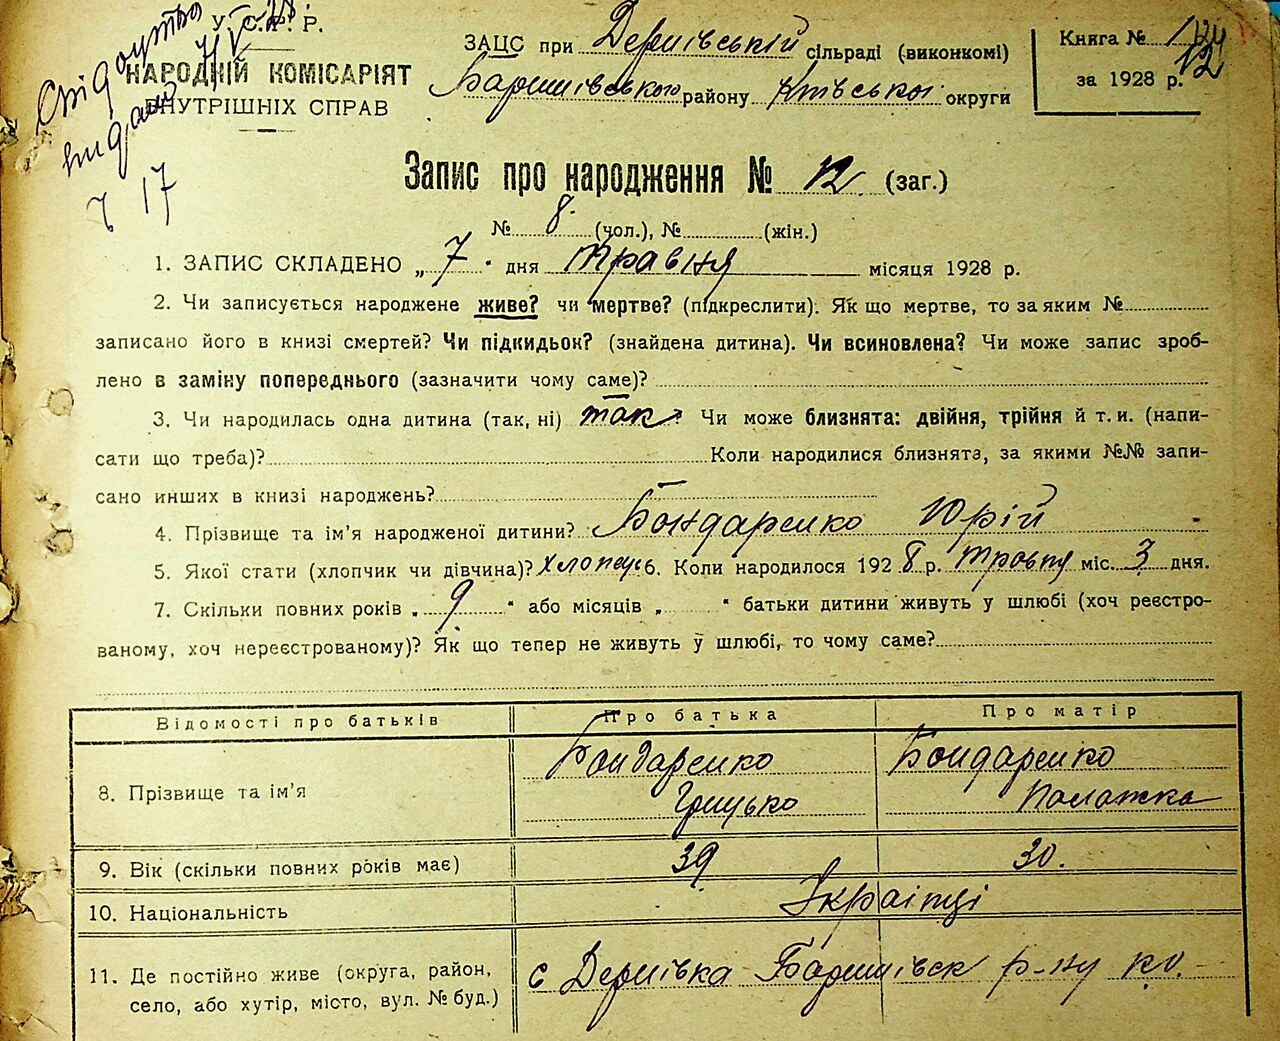 Свідоцтво
видано 7/V-28
ч 17
У. С. Р. Р.
НАРОДНІЙ КОМІСАРІЯТ
ВНУТРІШНІХ СПРАВ
ЗАЦС при Дернівській сільраді (виконкомі)
Баришівського району Київської округи
Книга № 1
за 1928 р.
12
Запис про народження № 12 (заг.)
№ 8 (чол.), № (жін.)
1. ЗАПИС СКЛАДЕНО „ 7 “ дня травня місяця 1928 р.
2. Чи записується народжене живе? чи мертве? (підкреслити). Як що мертве, то за яким №
записано його в книзі смертей? Чи підкидьок? (знайдена дитина). Чи всиновлена? Чи може запис зроб-
лено в заміну попереднього (зазначити чому саме)?
3. Чи народилась одна дитина (так, ні) так? Чи може близнята: двійня, трійня й т. и. (напи-
сати що треба)? Коли народилися близнята, за якими №№ запи-
сано инших в книзі народжень?
4. Прізвище та ім’я народженої дитини? Бондаренко Юрій
5. Якої стати (хлопчик чи дівчина)? хлопець 6. Коли народилося 1928 р. травня міс. 3 дня.
7. Скільки повних років „ 9 “ або місяців „ “ батьки дитини живуть у шлюбі (хоч реєстро-
ваному, хоч нереєстрованому)? Як що тепер не живуть у шлюбі, то чому саме?
Відомості про батьків Про батька Про матір
8. Прізвище та ім’я Бондаренко Грицько Бондаренко Палажка
9. Вік (скільки повних років має) 39 30.
10. Національність Українці
11. Де постійно живе (округа, район,
село, або хутір, місто, вул. № буд.) с Дернівка Баришівськ р-ну